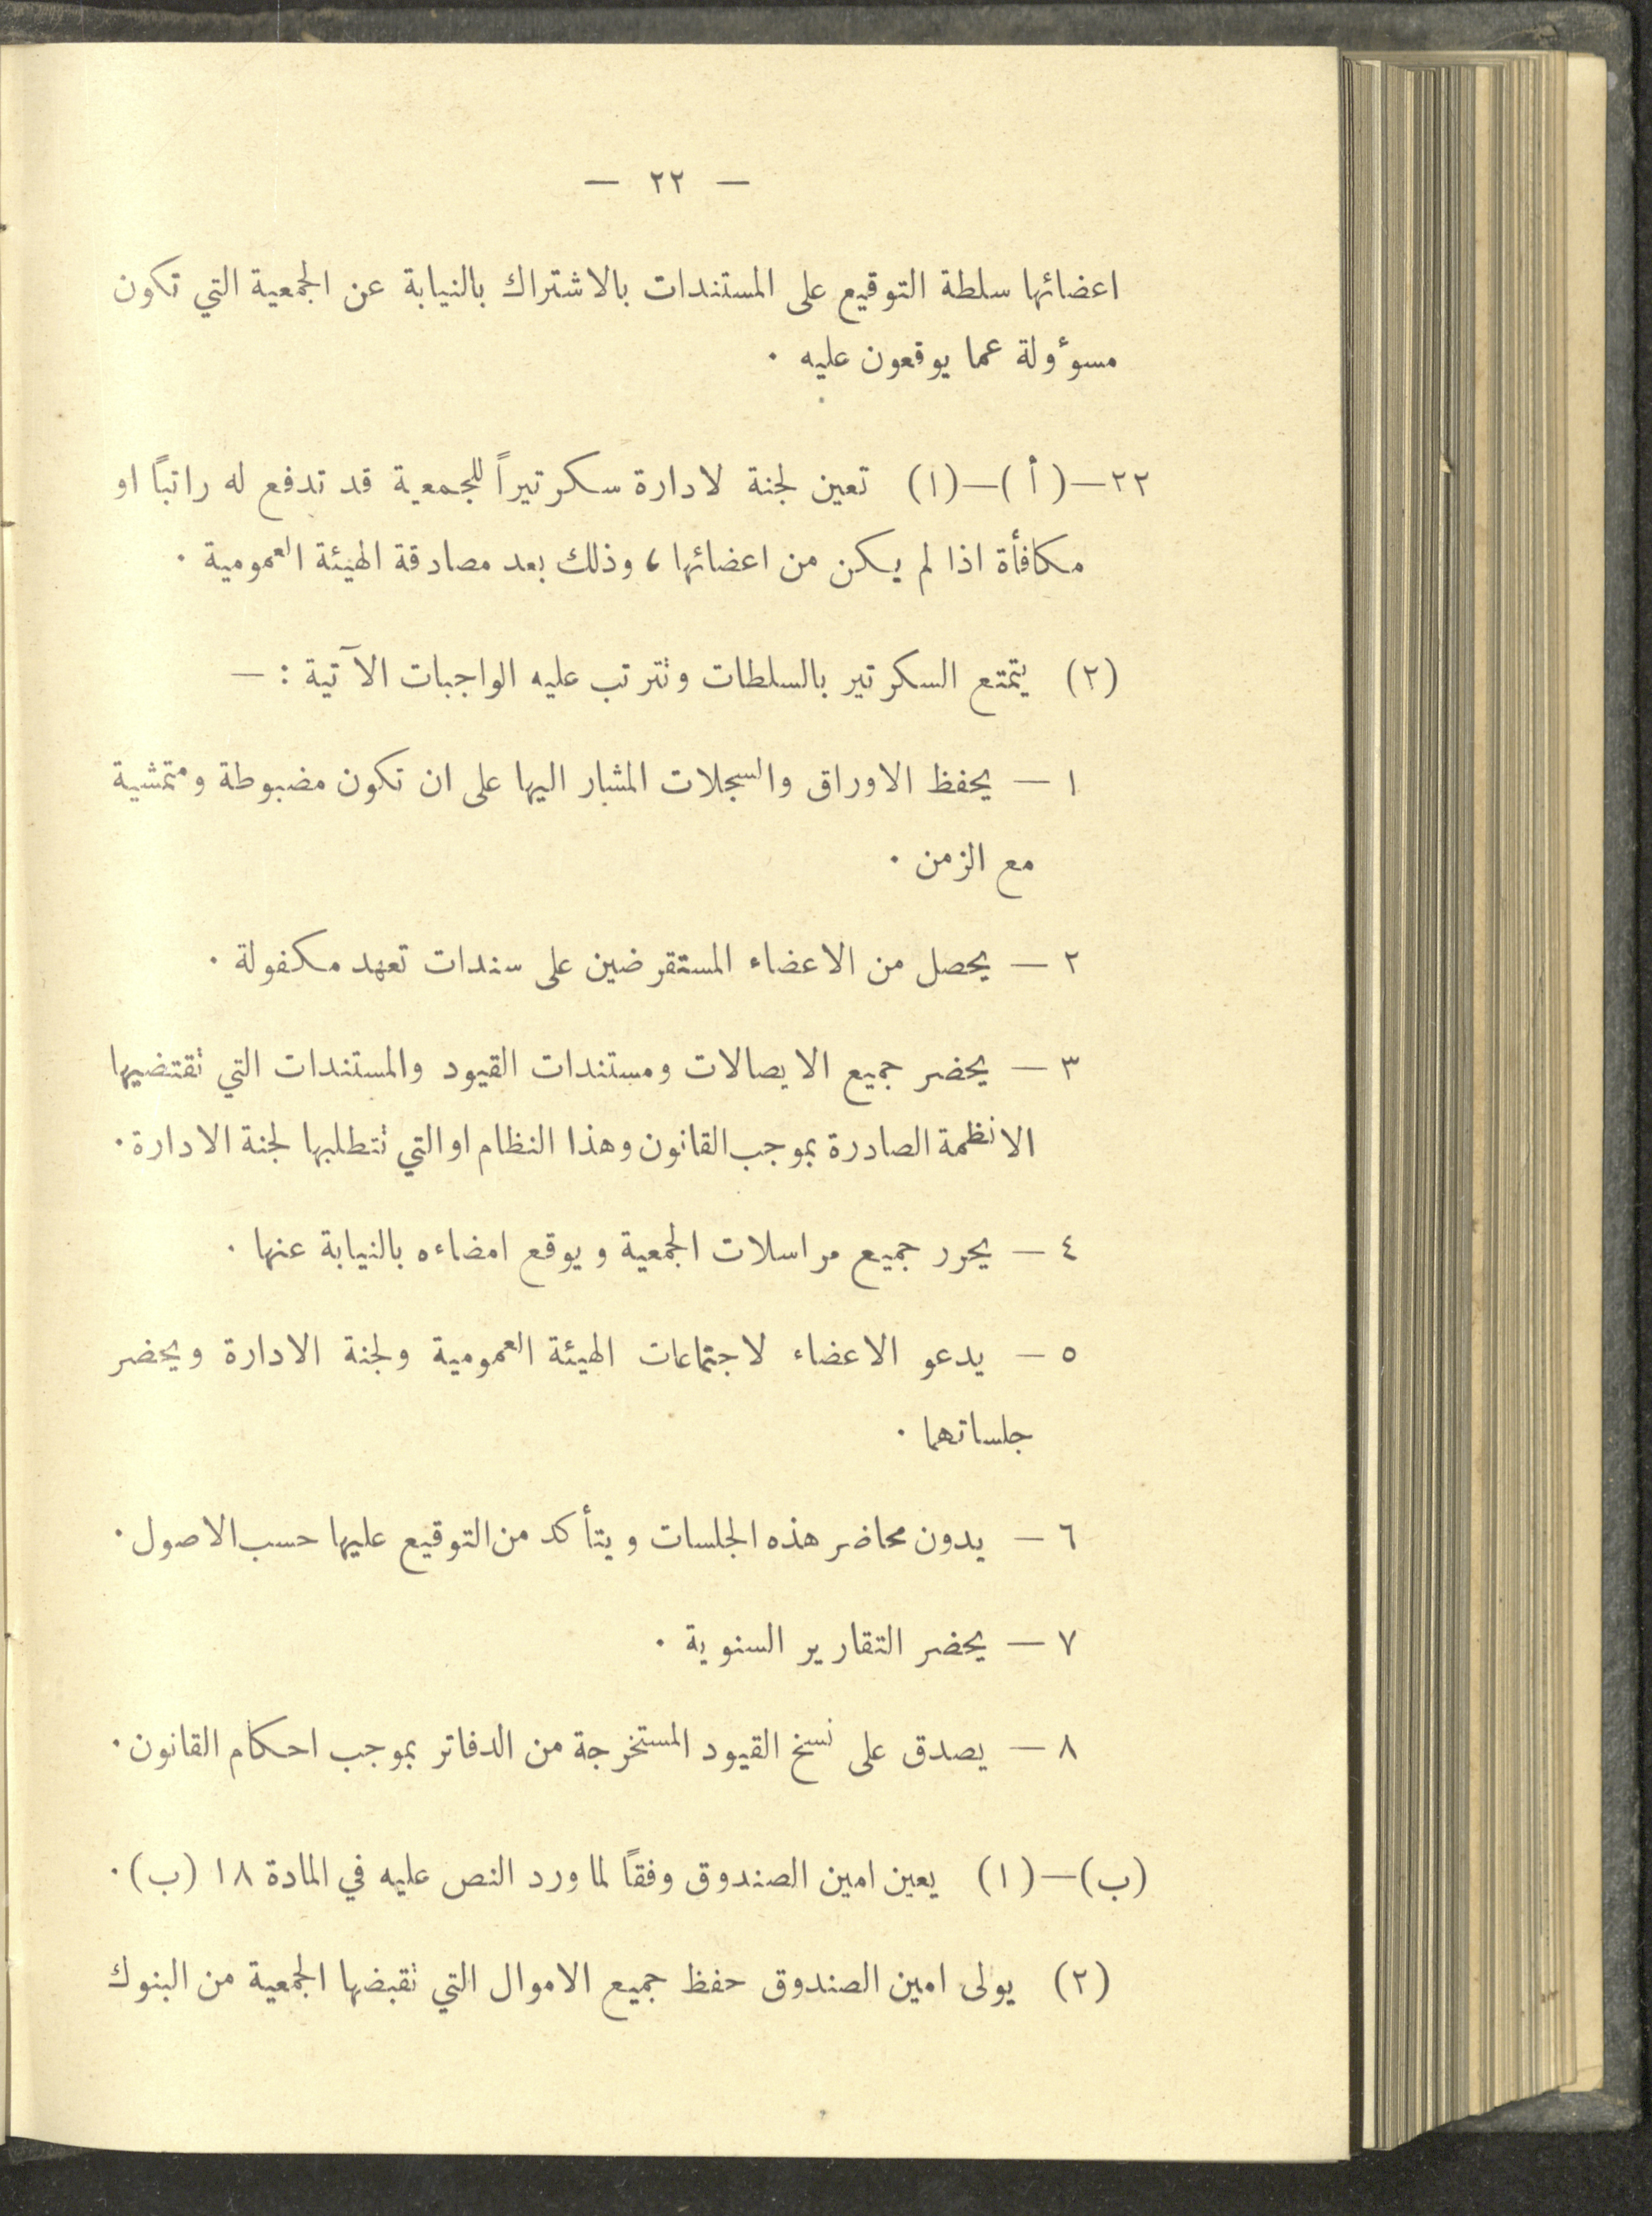 — ٢٢ —
اعضائها سلطة التوقيع على المستندات بالاشتراك بالنيابة عن الجمعية التي تكون
مسوٴولة عما يوقعون عليه .
٢٢—(أ)—(١) تعين لجنة لادارة سكرتيراً للجمعية قد تدفع له راتباً او
مكافأة اذا لم يكن من اعضائها ، وذلك بعد مصادقة الهيئة العمومية .
(٢) يتمتع السكرتير بالسلطات وتترتب عليه الواجبات الآتية : —
١ — يحفظ الاوراق والسجلات المشار اليها على ان تكون مضبوطة ومتمشية
مع الزمن .
٢ — يحصل من الاعضاء المستقرضين على سندات تعهد مكفولة .
٣ — يحضر جميع الايصالات ومستندات القيود والمستندات التي تقتضيها
الانظمة الصادرة بموجب القانون وهذا النظام او التي تتطلبها لجنة الادارة .
٤ — يحرر جميع مراسلات الجمعية ويوقع امضاءه بالنيابة عنها .
٥ — يدعو الاعضاء لاجتماعات الهيئة العمومية ولجنة الادارة ويحضر
جلساتهما .
٦ — يدون محاضر هذه الجلسات ويتأكد من التوقيع عليها حسب الاصول .
٧ — يحضر التقارير السنوية .
٨ — يصدق على نسخ القيود المستخرجة من الدفاتر بموجب احكام القانون .
(ب)—(١) يعين امين الصندوق وفقاً لما ورد النص عليه في المادة ١٨ (ب) .
(٢) يولى امين الصندوق حفظ جميع الاموال التي تقبضها الجمعية من البنوك